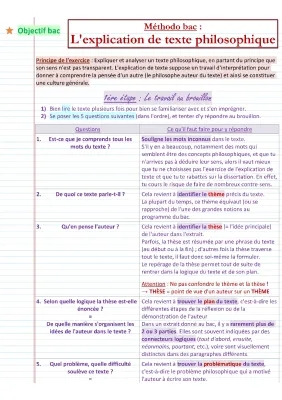 Objectif bac
Méthodo bac :
L'explication de texte philosophique
Principe de l'exercice : Expliquer et analyser un texte philosophique, en partant du principe que
son sens n'est pas transparent. L'explication de texte suppose un travail d'interprétation pour
donner à comprendre la pensée d'un autre (le philosophe auteur du texte) et ainsi se constituer
une culture générale.
1ère étape : Le travail au brouillon
1) Bien lire le texte plusieurs fois pour bien se familiariser avec et s'en imprégner.
2) Se poser les 5 questions suivantes (dans l'ordre), et tenter d'y répondre au brouillon.
Questions
Ce qu'il faut faire pour y répondre
1. Est-ce que je comprends tous les
mots du texte ?
Souligne les mots inconnus dans le texte.
S'il y en a beaucoup, notamment des mots qui
semblent être des concepts philosophiques, et que tu
n'arrives pas à déduire leur sens, alors il vaut mieux
que tu ne choisisses pas l'exercice de l'explication de
texte et que tu te rabattes sur la dissertation. En effet,
tu cours le risque de faire de nombreux contre-sens.
2. De quoi ce texte parle-t-il ?
Cela revient à identifier le thème précis du texte.
La plupart du temps, ce thème équivaut (ou se
rapproche) de l'une des grandes notions au
programme du bac.
3. Qu'en pense l'auteur ?
Cela revient à identifier la thèse (= l'idée principale)
de l'auteur dans l'extrait.
Parfois, la thèse est résumée par une phrase du texte
(au début ou à la fin) ; d'autres fois la thèse traverse
tout le texte, il faut donc soi-même la formuler.
Le repérage de la thèse permet tout de suite de
rentrer dans la logique du texte et de son plan.
Attention : Ne pas confondre le thème et la thèse !
→ THÈSE = point de vue d'un auteur sur un THÈME
4. Selon quelle logique la thèse est-elle
énoncée ?
=
De quelle manière s'organisent les
idées de l'auteur dans le texte ?
Cela revient à trouver le plan du texte, c'est-à-dire les
différentes étapes de la réflexion ou de la
démonstration de l'auteur
Dans un extrait donné au bac, il y a rarement plus de
2 ou 3 parties. Elles sont souvent indiquées par des
connecteurs logiques (tout d'abord, ensuite,
néanmoins, pourtant, etc.), voire sont visuellement
distinctes dans des paragraphes différents.
5. Quel problème, quelle difficulté
soulève ce texte ?
=
Cela revient à trouver la problématique du texte,
c'est-à-dire le problème philosophique qui a motivé
l'auteur à écrire son texte.